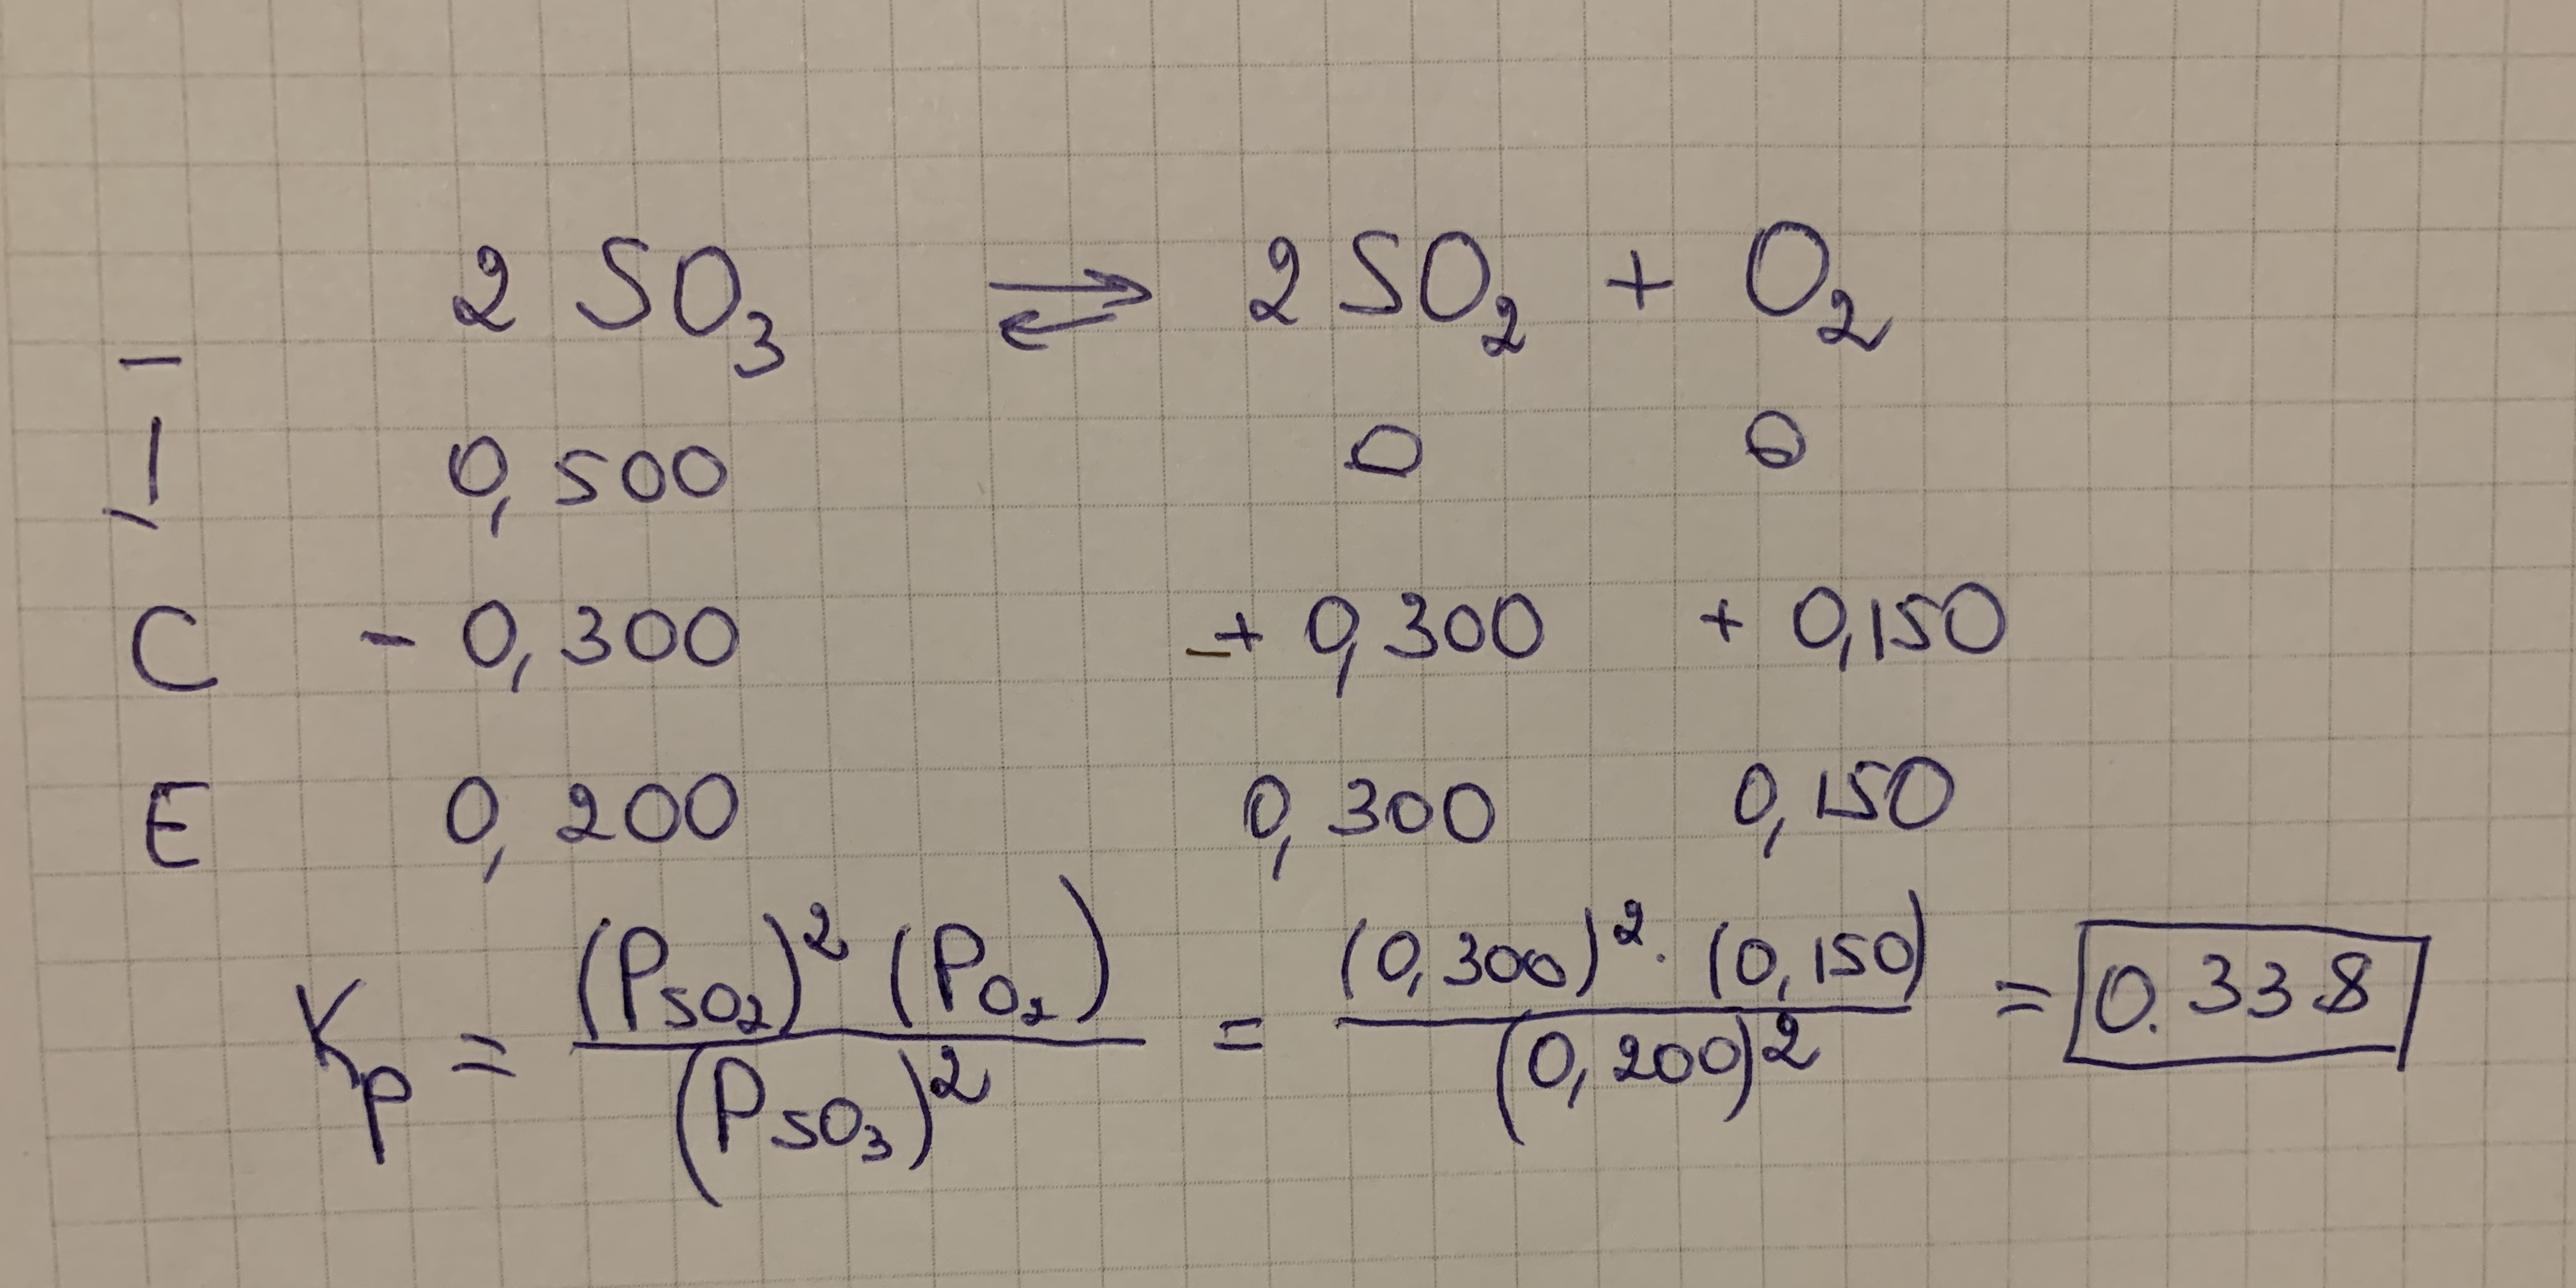 2 SO₃ ⇌ 2 SO₂ + O₂
I 0,500 0 0
C - 0,300 + 0,300 + 0,150
E 0,200 0,300 0,150
Kp = (P_SO₂)² (P_O₂) / (P_SO₃)² = (0,300)² · (0,150) / (0,200)² = 0.338